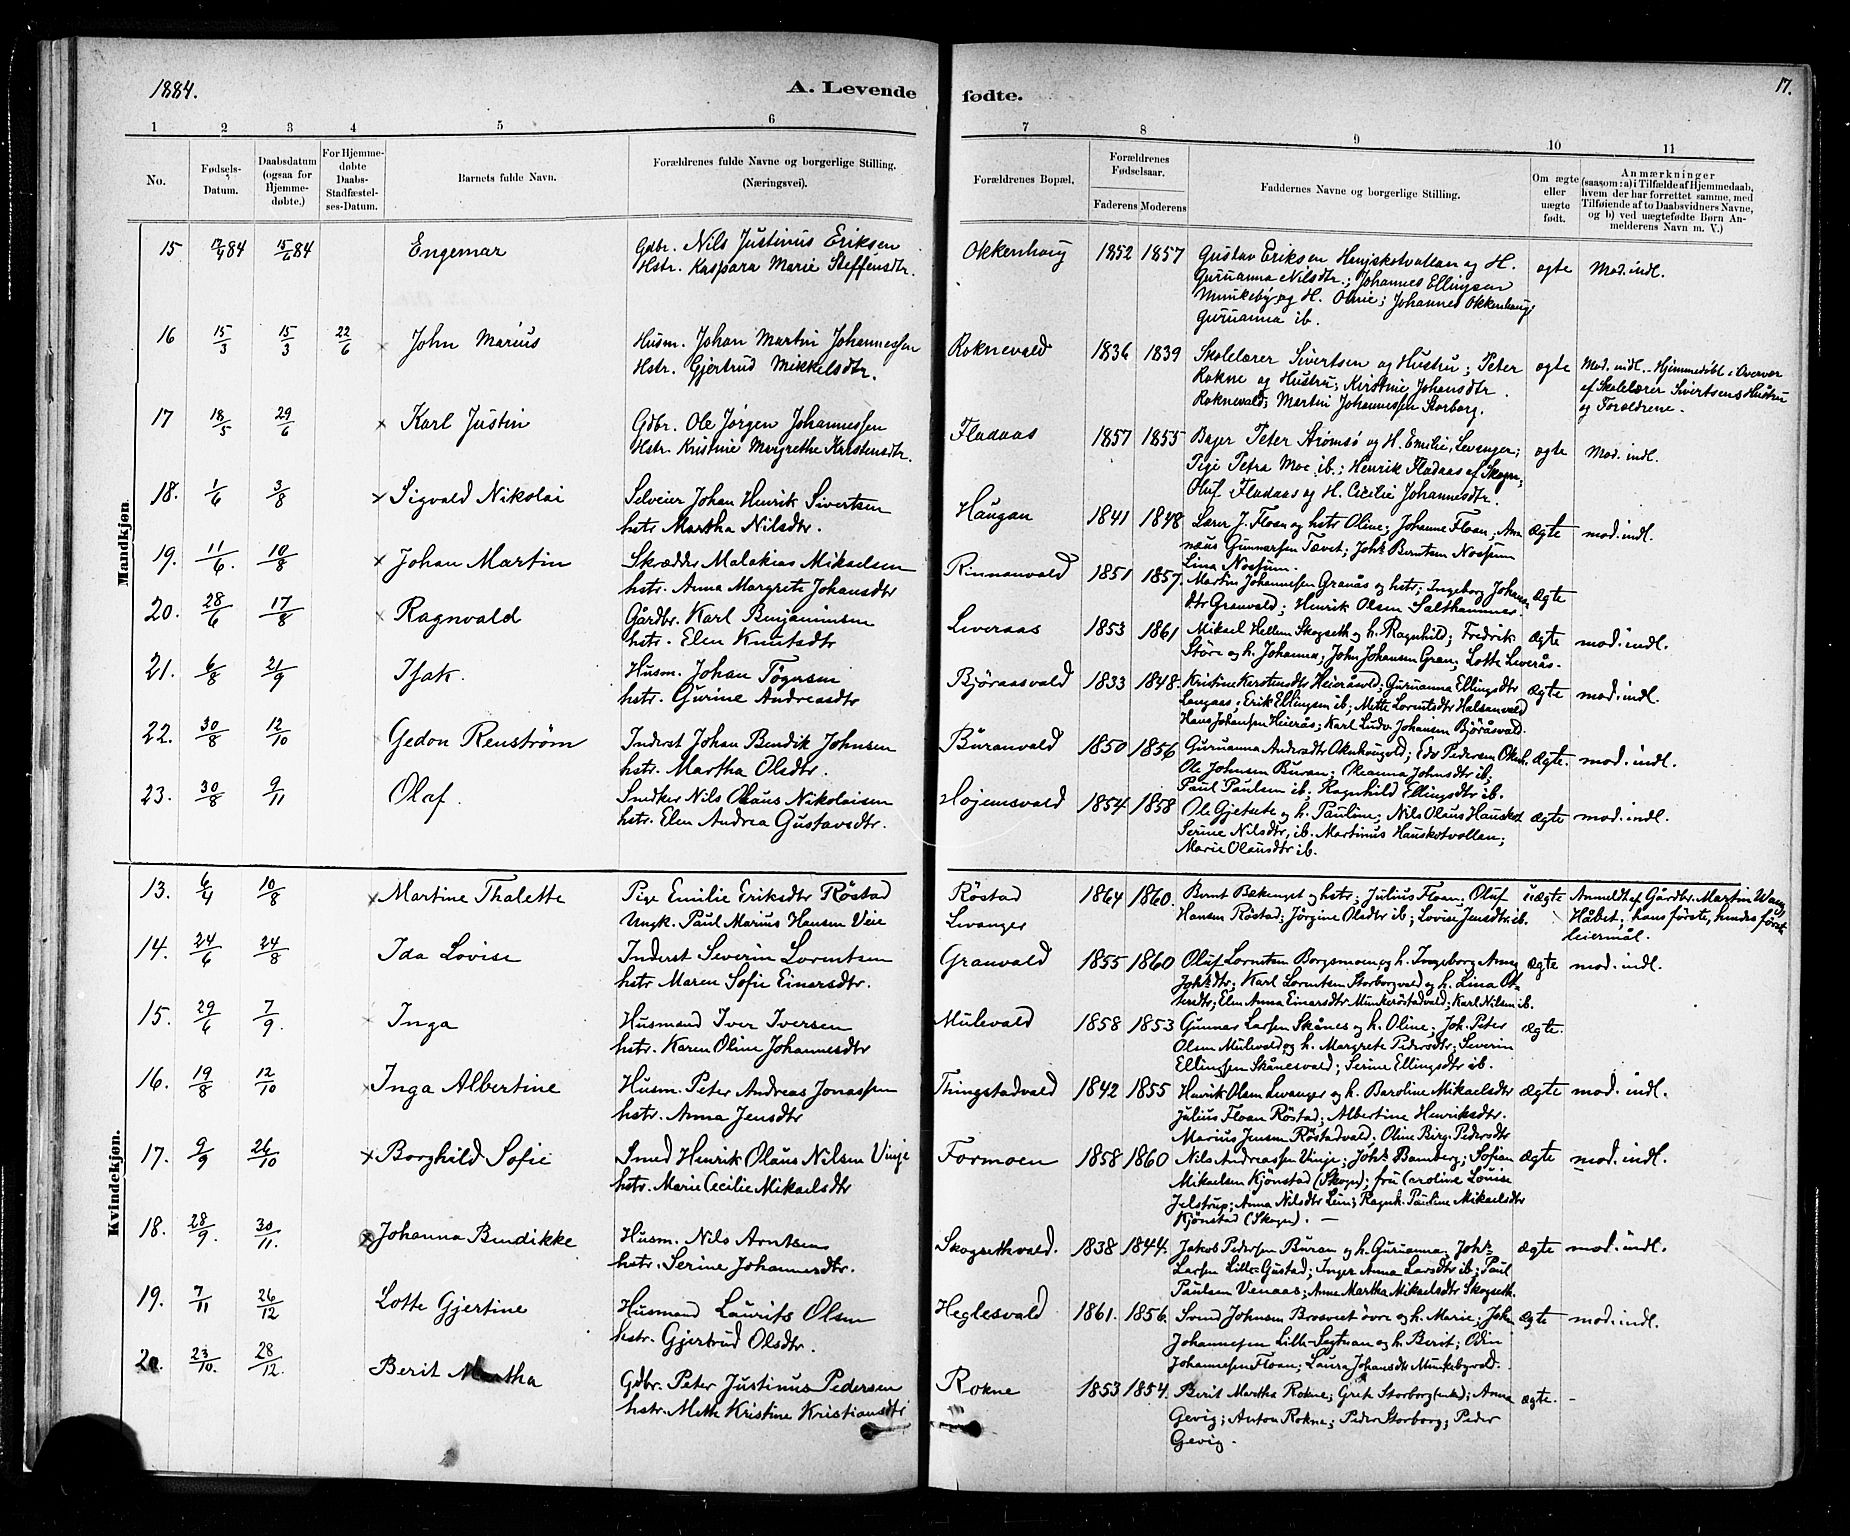 1884.
A. Levende fødte.
17.
1 2 3 4 5 6 7 8 9 10 11
No.
Fødsels-Datum.
Daabsdatum (ogsaa for Hjemme-døbte.)
For Hjemme-døbte Daabs-Stadfæstel-ses-Datum.
Barnets fulde Navn.
Forældrenes fulde Navne og borgerlige Stilling. (Næringsvei).
Forældrenes Bopæl,
Forældrenes Fødselsaar.
Faderens Moderens
Faddernes Navne og borgerlige Stilling.
Om ægte eller uægte født.
Anmærkninger
(saasom: a) i Tilfælde af Hjemmedaab,
hvem der har forrettet samme, med
Tilføiende af to Daabsvidners Navne,
og b) ved uægtefødte Børn An-
melderens Navn m. V.)
Mandkjøn
15 84 15/6 84 Engemar Gdbr. Nils Justinus Eriksen Okkenhaug 1852 1857 Gustav Eriksen og H. ægte Mod. indl.
Hstr. Kaspara Marie Steffensdtr. Guruanna Nilsdtr.; Johannes Ellingsen
Munkeby og H. Oline; Johannes Okkenhaug;
Guruanna ib.
16 15/3 15/3 22/6 John Marius Husm. Johan Martin Johannessen Roknevald 1836 1839 Skolelærer Sivertsen og Hustru; Peter ægte Mod. indl. Hjemmedøbt i Overvær
Hstr. Gjertrud Mikkelsdtr. Rokne og Hustru; Kirstine Johansdtr. af Skolelærer Sivertsens Hustru
Roknevald; Martin Johannessen Storborg. og Forældrene.
17 18/5 29/6 Karl Justin Gdbr. Ole Jørgen Johannessen Fladaas 1857 1855 Bager Peter Strømsø og H. Emilie, Levanger; ægte Mod. indl.
Hstr. Kristine Margrethe Karstensdtr. Pige Petra Moe ib.; Henrik Fladaas af Skogn;
Oluf Fladaas og H. Cecilie Johannesdtr.
18. 1/6 3/8 Sigvald Nikolai Selveier Johan Henrik Sivertsen Haugan 1841 1848 Lærer J. Floan og hstr Oline; Johanne Floan; ægte mod. indl.
hstr. Martha Nilsdtr. Gunnarsen Tævet; Johs Berntsen Nossum
Lina Nossum.
19. 11/6. 10/8 Johan Martin Skrædder Malakias Mikaelsen Rinnanvald 1851 1857. Martin Johannessen Granås og hstr; Ingeborg ægte
hstr. Anna Margrete Johansdtr dtr Granvald; Henrik Olsen Salthammer.
20. 28/6 17/8 Ragnvald Gårdbr. Karl Benjaminsen Leveraas 1853 1861 Mikael Hellem Skogseth og h. Ragnhild; Fredrik ægte mod. indl.
hstr. Elen Knutsdtr Støre og h. Johanna; John Johansen Gran; Lotte Leverås.
21. 6/8 21/9 Isak. Husm. Johan Tøgersen Bjøraasvald 1833 1848. Kristine Karstensdtr Heieråsvld; Guruanna Ellingsdtr ægte mod. indl.
hstr. Gurine Andreasdtr Langaas; Erik Ellingsen ib; Mette Lorentsdtr Halsanvald
Hans Johansen Heierås; Karl Ludv. Johansen Björåsvald.
22. 30/8 12/10 Gedon Renstrøm Inderst Johan Bendik Johnsen Buranvald 1850 1856 Guruanna Andersdtr; Edv. Pedersen ægte. mod. indl.
hstr. Martha Olsdtr. Ole Johnsen Buran; Oleanna Johnsdtr ib;
Paul Paulsen ib; Ragnhild Ellingsdtr ib.
23. 30/8 9/11 Olaf. Snedker Nils Olaus Nikolaisen Højemsvald 1854 1858 Ole Gjetsete og h. Pauline; Nils Olaus ægte mod. indl.
hstr. Elen Andrea Gustavsdtr. Serine Nilsdtr, ib. Martinus Hauskotvollan;
Marie Olausdtr ib.
Kvindekjøn.
13. 6/4 10/8 Martine Thalette Pige Emilie Eriksdtr Röstad Röstad 1864 1860. Bernt og hstr; Julius Floan; Oluf uægte Anmeldt af Gårdbr. Martin
Ungk. Paul Marius Hansen Veie Levanger Hansen Röstad; Jörgine Olsdtr ib; Lovise Jensdtr ib. Håbet; hans første, hendes første
leiermål.
14. 24/6 24/8 Ida Lovise Inderst Severin Lorentsen Granvald 1855 1860 Oluf Lorentsen Borgsmoen og h. Ingeborg Anna ægte mod. indl.
hstr Maren Sofie Einarsdtr. Johs dtr; Karl Lorentsen Storborgvald og h. Lina
Elen Anna Einarsdtr Munkeröstadvald; Karl Nilsen ib.
15. 29/6 7/9. Inga Husmand Iver Iversen Mulevald 1858 1853 Gunnar Larsen Skånes og h. Oline; Joh. Peter ægte.
hstr. Karen Oline Johannesdtr Olsen Mulevald og h. Margrete Pedersdtr; Severin
Ellingsen Skånesvald; Serine Ellingsdtr ib.
16. 19/8 12/10 Inga Albertine Husm. Peter Andreas Jonassen Thingstadvald 1842 1855 Henrik Olsen Levanger og h. Baroline Mikaelsdtr ægte mod. indl.
hstr. Anna Jensdtr Julius Floan Röstad; Albertine Henriksdtr.
Marius Jensen Röstadvald; Oline Birg. Pedersdtr
17. 9/9 26/10 Borghild Sofie Smed Henrik Olaus Nilsen Vinje Formoen 1858 1860 Nils Andreassen Vinje; Johs Bamberg; Sofian ægte mod. indl.
hstr. Marie Cecilie Mikaelsdtr Mikaelsen Kjönstad (Skogn); fru Caroline Louise
Jelstrup; Anna Nilsdtr; Ragnh. Pauline Mikaelsdtr
Kjönstad (Skogn). –
18. 28/9. 30/11. Johanna Bendikke Husm. Nils Arntsen Skogsethvald. 1838 1844. Jakob Pedersen Buran og h. Guruanna; Johs ægte mod. indl.
hstr. Serine Johannesdtr. Larsen Lille-Gustad; Inger Anna Larsdtr ib; Paul
Paulsen Venaas; Anne Martha Mikaelsdtr Skogseth.
19. 7/11 26/12 Lotte Gjertine Husmand Laurits Olsen Heglesvald 1861. 1856. Svend Johnsen Brosveet øvre og h. Marie; Joh. ægte mod. indl.
hstr. Gjertrud Olsdtr. Johannessen Lille-Segtnan og h. Berit; Odin
Johannessen Floan; Laura Johansdtr Munkebyvald.
20. 23/10. 28/12. Berit Martha Gdbr. Peter Justinus Pedersen Rokne 1853 1854. Berit Martha Rokne; Grete Storborg (enke); Anna ægte. –
hstr. Mette Kristine Kristiansdtr Gevig; Anton Rokne; Peder Storborg; Peder
Gevig.